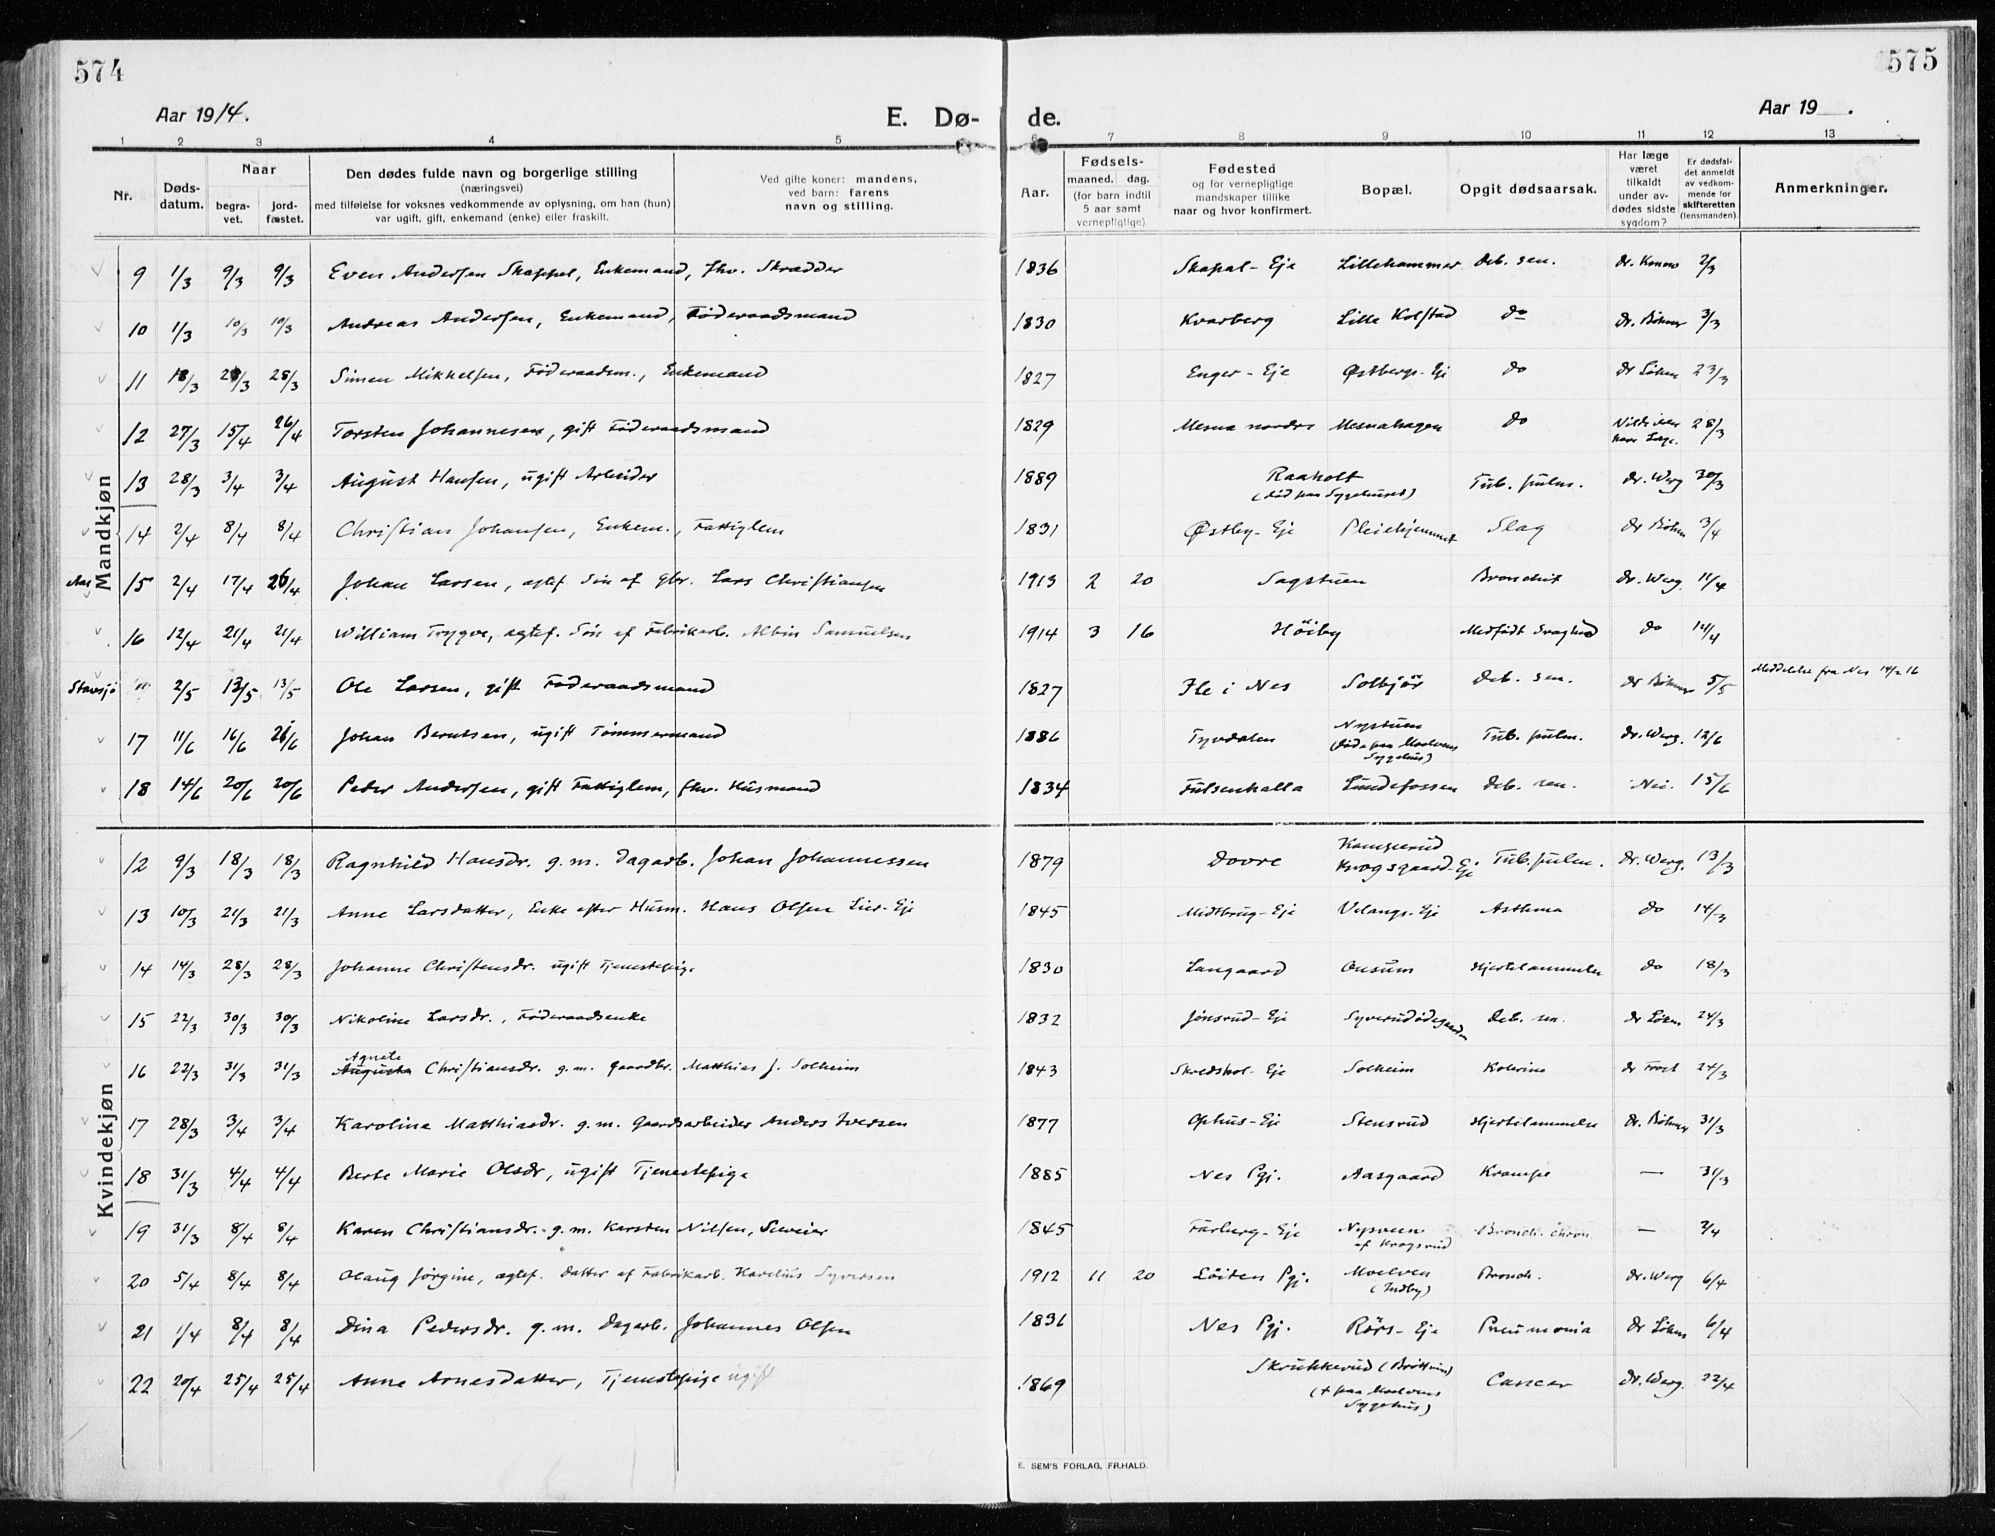 574
575
Aar 1914.
E. Dø- de.
Aar 19 .
1 2 3 4 5 6 7 8 9 10 11 12 13
Nr.
Døds-
datum.
Naar
begra-
vet.
jord-
fæstet.
Den dødes fulde navn og borgerlige stilling
(næringsvei)
med tilføielse for voksnes vedkommende av oplysning, om han (hun)
var ugift, gift, enkemand (enke) eller fraskilt.
Ved gifte koner: mandens,
ved barn: farens
navn og stilling.
Aar.
Fødsels-
maaned. dag.
(for barn indtil
5 aar samt
vernepligtige)
Fødested
og for vernepligtige
mandskaper tillike
naar og hvor konfirmert.
Bopæl.
Opgit dødsaarsak.
Har læge
været
tilkaldt
under av-
dødes sidste
sygdom?
Er dødsfal-
det anmeldt
av vedkom-
mende for
skifteretten
(lensmanden).
Anmerkninger.
Mandkjøn
9 1/3 9/3 9/3 Even Andersen Skappel, Enkemand, fhv. Skrædder 1836 Skapal-Eje Lillehammer Deb. sen. dr. Konow 2/3
10 1/3 10/3 10/3 Andreas Andersen, Enkemand, Føderaadsmand 1830 Kvarberg Lille Kolstad do dr. Böhmer 3/3
11 18/3 28/3 28/3 Simen Mikkelsen, Føderaadsm., Enkemand 1827 Enger-Eje Østbergs-Ej do dr Løken 23/3
12 27/3 15/4 26/4 Torsten Johannesen, gift Føderaadsmand 1829 Mesna nordre Mesnahagen do Vilde ikke have Læge. 28/3
13 28/3 3/4 3/4 August Hansen, ugift Arbeider 1889 Raaholt (død paa Sygehuset) Tub. pulm. dr. Werg 30/3
14 2/4 8/4 8/4 Christian Johansen, Enkem., Fattiglem 1831 Østby-Eje Pleiehjemmet Slag dr Böhm 3/4
Aas 15 2/4 17/4 26/4 Johan Larsen, ægtef. Søn af Gbr. Lars Christiansen 1913 2 20 Sagstuen Bronchit dr. Werg. 11/4
16 12/4 21/4 21/4 William Trygve, ægtef. Søn af Fabrikarb. Albin Samuelsen 1914 3 16 Höiby Medfødt Svaghed do 14/4
Stavsjø " 2/5 13/5 13/5 Ole Larsen, gift Føderaadsmand 1827 Hle i Nes Solbjør Deb. sen. dr Böhmer 5/5 Meddelelse fra Nes 14/2 16
17 11/6 16/6 21/6 Johan Berntsen, ugift Tømmermand 1886 Tyvdalen Nystuen (døde paa Moelvens Sygehus) Tub. pulm. dr. Werg. 12/6
18 14/6 20/6 20/6 Peder Andersen, gift Fattiglem, fhv. Husmand 1834 Fulsenhalla Lundefossen Deb. sen. Nei. 15/6
Kvindekjøn
12 9/3 18/3 18/3 Ragnhild Hansdr. g.m. Dagarb. Johan Johannessen 1879 Dovre Kamperud Krogsgaard-Ej Tub. pulm. dr. Werg. 13/3
13 10/3 21/3 21/3 Anne Larsdatter, Enke efter Husm. Hans Olsen Lier-Eje 1845 Midtbrug-Eje Velangs-Eje Asthma do 14/3
14 14/3 28/3 28/3 Johanne Christensdr. ugift Tjenestepige 1830 Langaard Onsum Hjertelammelse do 18/3
15 22/3 30/3 30/3 Nikoline Larsdr., Føderaadsenke 1832 Jønsrud-Eje Syverudødegaarden Deb. sen. dr Løken 24/3
Agnete
16 22/3 31/3 31/3 Augusta Christiansdr. g.m. Gaardbr. Matthias J. Solheim 1843 Skredshol-Eje Solheim Kolerine dr Frost 24/3
17 28/3 3/4 3/4 Karoline Matthiasdr. g.m. Gaardsarbeider Anders Iversen 1877 Ophus-Eje Stensrud Hjertelammelse dr. Böhmer 31/3
18 31/3 4/4 4/4 Berte Marie Olsdr, ugift Tjenestepige 1885 Nes Pgj. Aasgaard Krampe — 31/3
19 31/3 8/4 8/4 Karen Christiansdr. g.m. Karsten Nilsen, Sveier 1845 Farberg-Eje Nysveen af Krogsrud Bronch. chron. — 2/4
20 5/4 8/4 8/4 Olaug Jørgine, ægtef. Datter af Fabrikarb. Karelius Syversen 1912 11 20 Löiten Pgj. Moelven (Indby) Bronch. dr. Werg 6/4
21 1/4 8/4 8/4 Dina Pedersdr. g.m. Dagarb. Johannes Olsen 1836 Nes Pgj. Rörs-Eje Pneumonia dr Løken 6/4
22 20/4 25/4 25/4 Anne Arnesdatter, Tjenestepige ugift 1869 Skrukkerud (Brøttum) († paa Moelvens Sygehus) Cancer dr. Werg. 22/4
E. SEM'S FORLAG, FR.HALD.